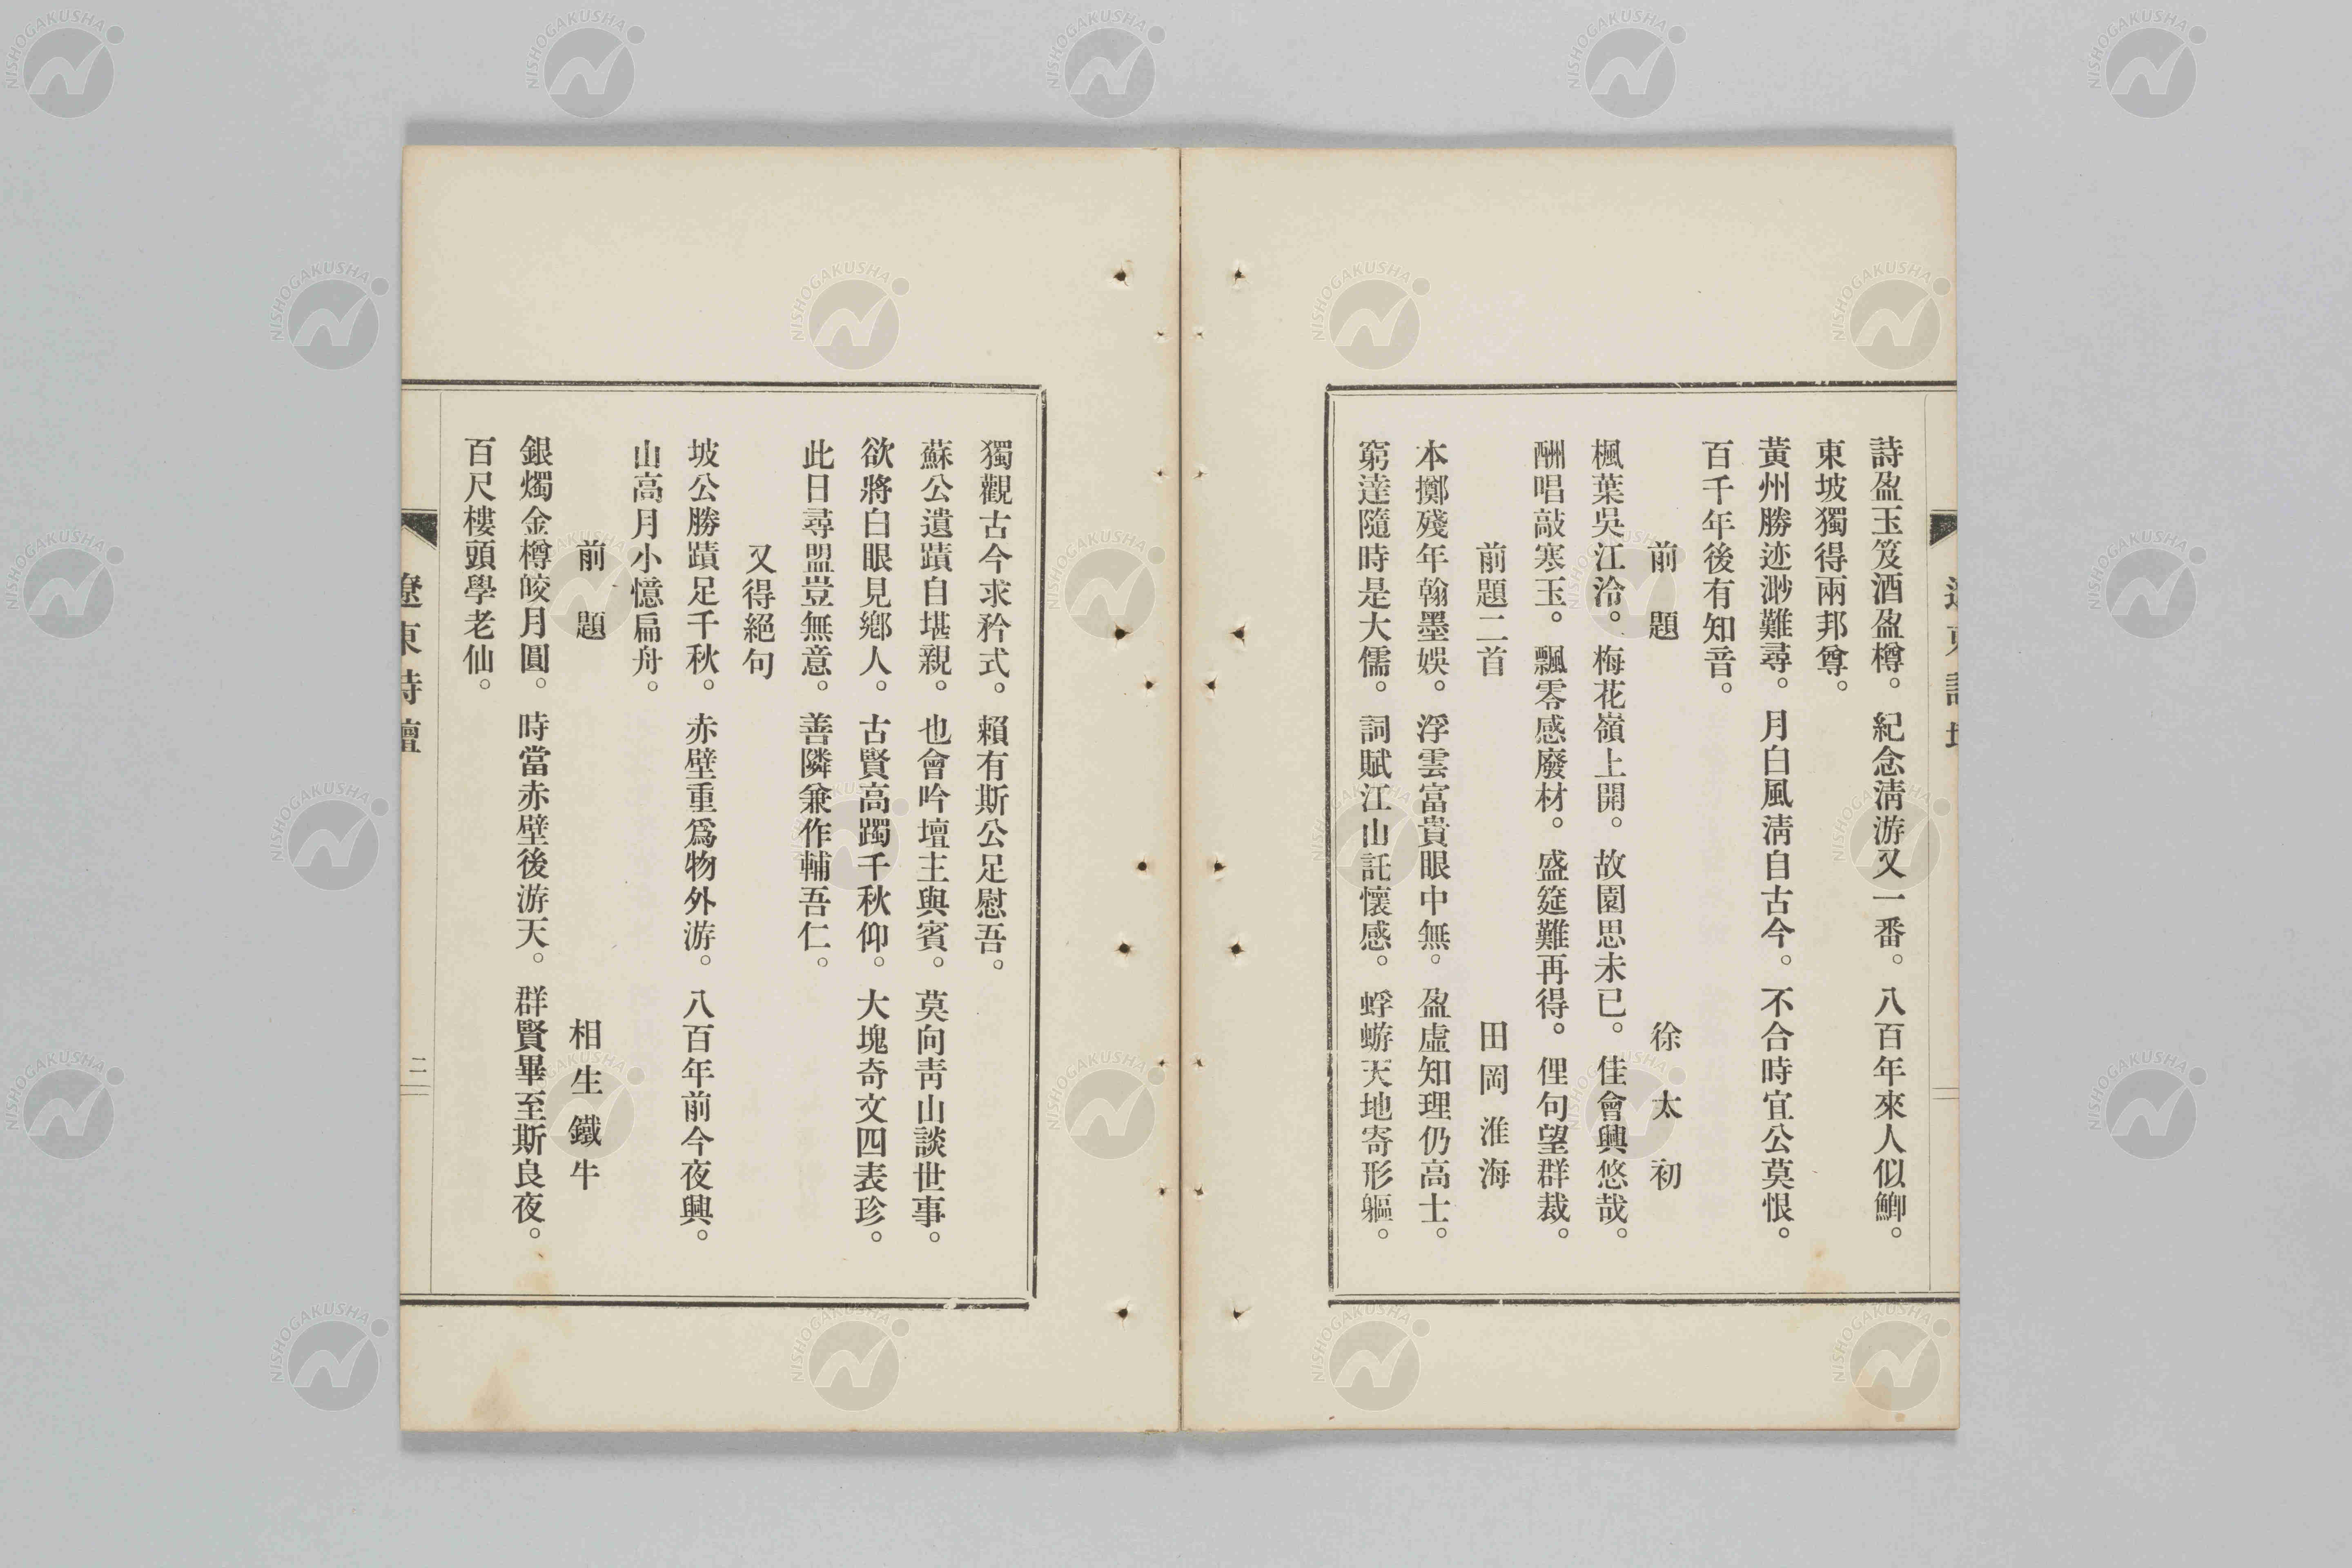 詩盈玉笈酒盈樽。紀念淸游又一番。八百年來人似鯽。
東坡獨得兩邦尊。
黃州勝迹渺難尋。月白風淸自古今。不合時宜公莫恨。
百千年後有知音。
前題 徐太初
楓葉吳江冷。梅花嶺上開。故園思未已。佳會興悠哉。
酬唱敲寒玉。飄零感廢材。盛筵難再得。俚句望群裁。
前題二首 田岡淮海
本擲殘年翰墨娛。浮雲富貴眼中無。盈虛知理仍高士。
窮達隨時是大儒。詞賦江山託懷感。蜉蝣天地寄形軀。
獨觀古今求矜式。賴有斯公足慰吾。
蘇公遺蹟自堪親。也會吟壇主與賓。莫向靑山談世事。
欲將白眼見鄕人。古賢高躅千秋仰。大塊奇文四表珍。
此日尋盟豈無意。善隣兼作輔吾仁。
又得絕句
坡公勝蹟足千秋。赤壁重爲物外游。八百年前今夜興。
山高月小憶扁舟。
前題 相生鐵牛
銀燭金樽皎月圓。時當赤壁後游天。群賢畢至斯良夜。
百尺樓頭學老仙。
遼東詩壇
二
NISHOGAKUSHA